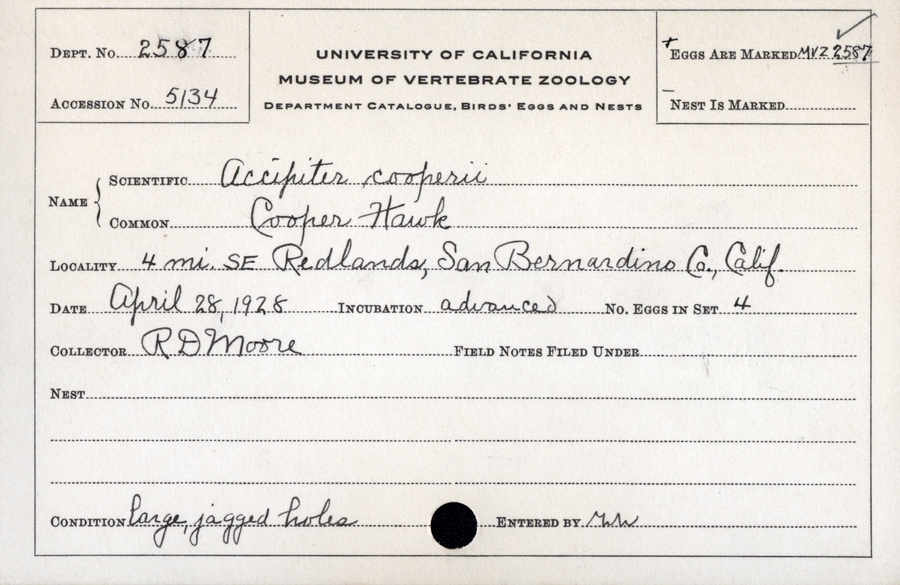 DEPT. No. 2587
UNIVERSITY OF CALIFORNIA
MUSEUM OF VERTEBRATE ZOOLOGY
DEPARTMENT CATALOGUE, BIRDS' EGGS AND NESTS
+ EGGS ARE MARKED MVZ 2587
ACCESSION No. 5134
– NEST IS MARKED
NAME
SCIENTIFIC Accipiter cooperii
COMMON Cooper Hawk
LOCALITY 4 mi. SE Redlands, San Bernardino Co., Calif.
DATE April 28, 1928 INCUBATION advanced No. EGGS IN SET 4
COLLECTOR R D Moore FIELD NOTES FILED UNDER
NEST
CONDITION large, jagged holes ENTERED BY